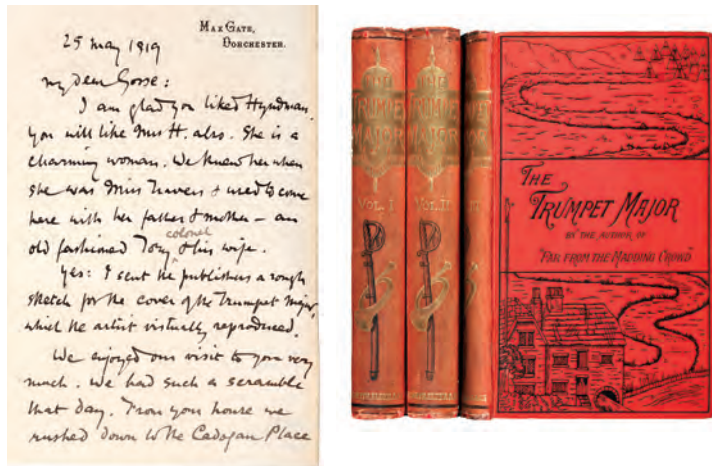 MAX GATE,
DORCHESTER.
25 May 1919
My dear Gosse:
I am glad you liked Hyndman.
You will like Mrs H. also. She is a
charming woman. We knew her when
she was Miss Travers & used to come
here with her father & mother – an
old fashioned Tory colonel & his wife.
Yes: I sent the publishers a rough
sketch for the cover of the Trumpet Major,
which the artist virtually reproduced.
We enjoyed our visit to you very
much. We had such a scramble
that day. From your house we
rushed down to the Cadogan Place
THE
TRUMPET
MAJOR
VOL. I
THE
TRUMPET
MAJOR
VOL. II
THE
TRUMPET MAJOR
BY THE AUTHOR OF
"FAR FROM THE MADDING CROWD"